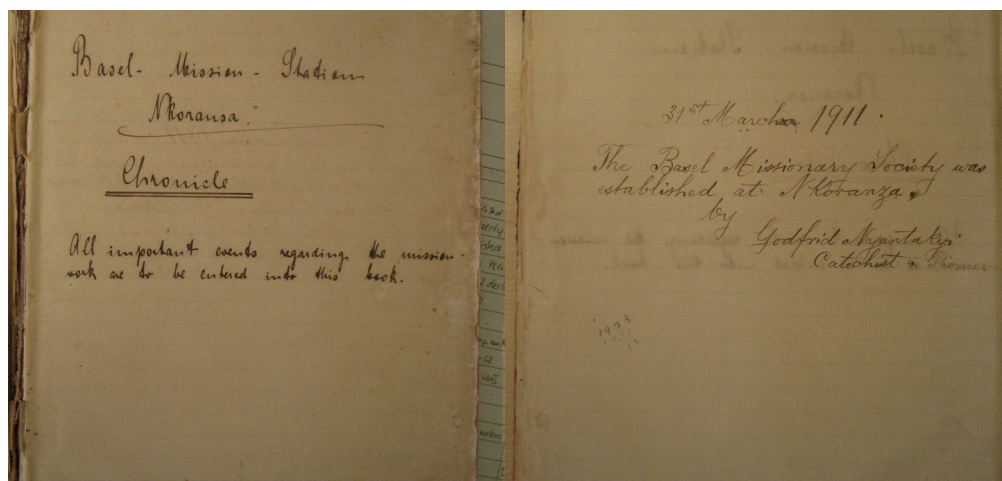 Basel - Mission - Station
Nkoransa.
Chronicle
All important events regarding the mission-
work are to be entered into this book.
31st March 1911.
The Basel Missionary Society was
established at Nkoranza,
by
Godfrid Nyantakyi
Catechist & Pioneer
1923